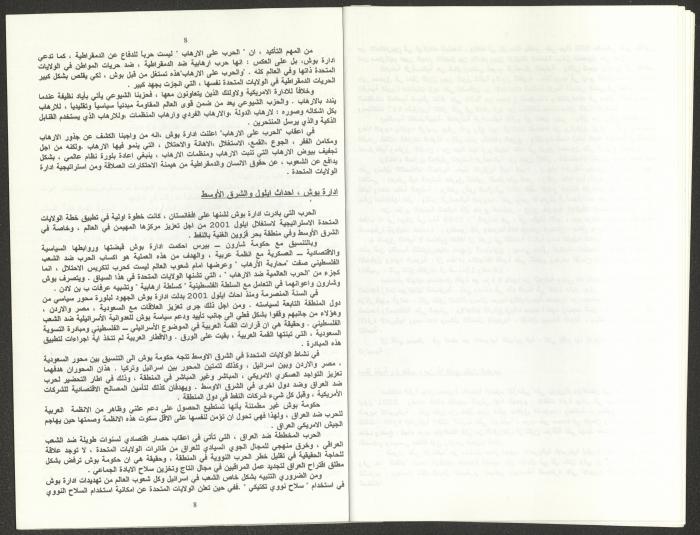 8
من المهم التأكيد ، ان " الحرب على الارهاب " ليست حرباً للدفاع عن الدمقراطية ، كما تدعي
ادارة بوش، بل على العكس : انها حرب ارهابية ضد الدمقراطية ، ضد حريات المواطن في الولايات
المتحدة ذاتها وفي العالم كله . "والحرب على الارهاب"هذه تستغل من قبل بوش ، لكي يقلص بشكل كبير
الحريات الدمقراطية في الولايات المتحدة نفسها ، التي انجزت بجهد كبير .
وخلافاً للادارة الامريكية ولاولئك الذين يتعاونون معها ، فحزبنا الشيوعي يأتي بأياد نظيفة عندما
يندد بالارهاب . والحزب الشيوعي يعد من ضمن قوى العالم المقاومة مبدئياً سياسياً وتقليدياً ، للارهاب
بكل اشكاله وصوره : لارهاب الدولة ،والارهاب الفردي وارهاب المنظمات ،وللارهاب الذي يستخدم القنابل
الذكية والذي يرسل المنتحرين .
في اعقاب "الحرب على الارهاب" اعلنت ادارة بوش ،انه من واجبنا الكشف عن جذور الارهاب
ومكامن الفقر ، الجوع ،القمع، الاستغلال ،الاهانة والاحتلال ، التي ينمو فيها الارهاب .ولكنه من اجل
تجفيف بيوض الارهاب التي تنبت الارهاب ومنظمات الارهاب ، ينبغي اعادة بلورة نظام عالمي ، بشكل
يدافع عن الشعوب ، عن حقوق الانسان والدمقراطية من هيمنة الاحتكارات العملاقة ومن استراتيجية ادارة
الولايات المتحدة .
ادارة بوش ، احداث ايلول والشرق الأوسط
الحرب التي بادرت ادارة بوش لشنها على افغانستان ، كانت خطوة اولية في تطبيق خطة الولايات
المتحدة الاستراتيجية لاستغلال ايلول 2001 من اجل تعزيز مركزها المهيمن في العالم ، وخاصة في
الشرق الأوسط وفي منطقة بحر قزوين الغنية بالنفط .
وبالتنسيق مع حكومة شارون ــ بيرس احكمت ادارة بوش قبضتها وروابطها السياسية
والاقتصادية ــ العسكرية مع انظمة عربية ، والهدف من هذه العملية هو اكساب الحرب ضد الشعب
الفلسطيني صفت "محاربة الأرهاب " وعرضها امام شعوب العالم ليست كحرب لتكريس الاحتلال ، انما
كجزء من "الحرب العالمية ضد الارهاب " ، التي تشنها الولايات المتحدة في هذا السياق . ويتصرف بوش
وشارون واعوانهما في التعامل مع السلطة الفلسطينية " كسلطة ارهابية " وتشبيه عرفات ب بن لادن .
في السنة المنصرمة ومنذ احداث ايلول 2001 بذلت ادارة بوش الجهود لبلورة محور سياسي من
دول المنطقة التابعة لسياسته . ومن اجل ذلك جرى تعزيز العلاقات مع السعودية ، مصر والاردن ،
وهؤلاء من جانبهم وقفوا بشكل فعلي الى جانب تأييد ودعم سياسة بوش للعدوانية الأسرائيلية ضد الشعب
الفلسطيني . وحقيقة هي ان قرارات القمة العربية في الموضوع الأسرائيلي ــ الفلسطيني ومبادرة التسوية
السعودية ، التي تبنتها القمة العربية ، بقيت على الورق . والاقطار العربية لم تتخذ اية اجراءات لتطبيق
هذه المبادرة .
في نشاط الولايات المتحدة في الشرق الاوسط تتجه حكومة بوش الى التنسيق بين محور السعودية
، مصر والاردن وبين اسرائيل ، وكذلك لتمتين المحور بين اسرائيل وتركيا . هذان المحوران هدفهما
تعزيز التواجد العسكري الامريكي ، المباشر وغير المباشر في المنطقة ، وذلك في اطار التحضير لحرب
ضد العراق وضد دول اخرى في الشرق الاوسط . ويهدفان كذلك لتأمين المصالح الاقتصادية للشركات
الأمريكية ، وقبل كل شيء شركات النفط في دول المنطقة .
حكومة بوش غير مطمئنة بأنها تستطيع الحصول على دعم علني وظاهر من الانظمة العربية
للحرب ضد العراق ، ولهذا فهي تحول ان تؤمن لنفسها على الاقل سكوت هذه الانظمة وصمتها حين يهاجم
الجيش الامريكي العراق .
الحرب المخططة ضد العراق ، التي تأتي في اعقاب حصار اقتصادي لسنوات طويلة ضد الشعب
العراقي ، وخرق منهجي للمجال الجوي السيادي للعراق من طائرات الولايات المتحدة ، لا توجد علاقة
للحاجة الحقيقية في تقليل خطر الحرب النووية في المنطقة ، وحقيقة هي ان حكومة بوش ترفض بشكل
مطلق اقتراح العراق لتجديد عمل المراقبين في مجال انتاج وتخزين سلاح الابادة الجماعي .
ومن الضروري التنبيه بشكل خاص الشعب في اسرائيل وكل شعوب العالم من تهديدات ادارة بوش
في استخدام " سلاح نووي تكتيكي " .ففي حين تعلن الولايات المتحدة عن امكانية استخدام السلاح النووي
8